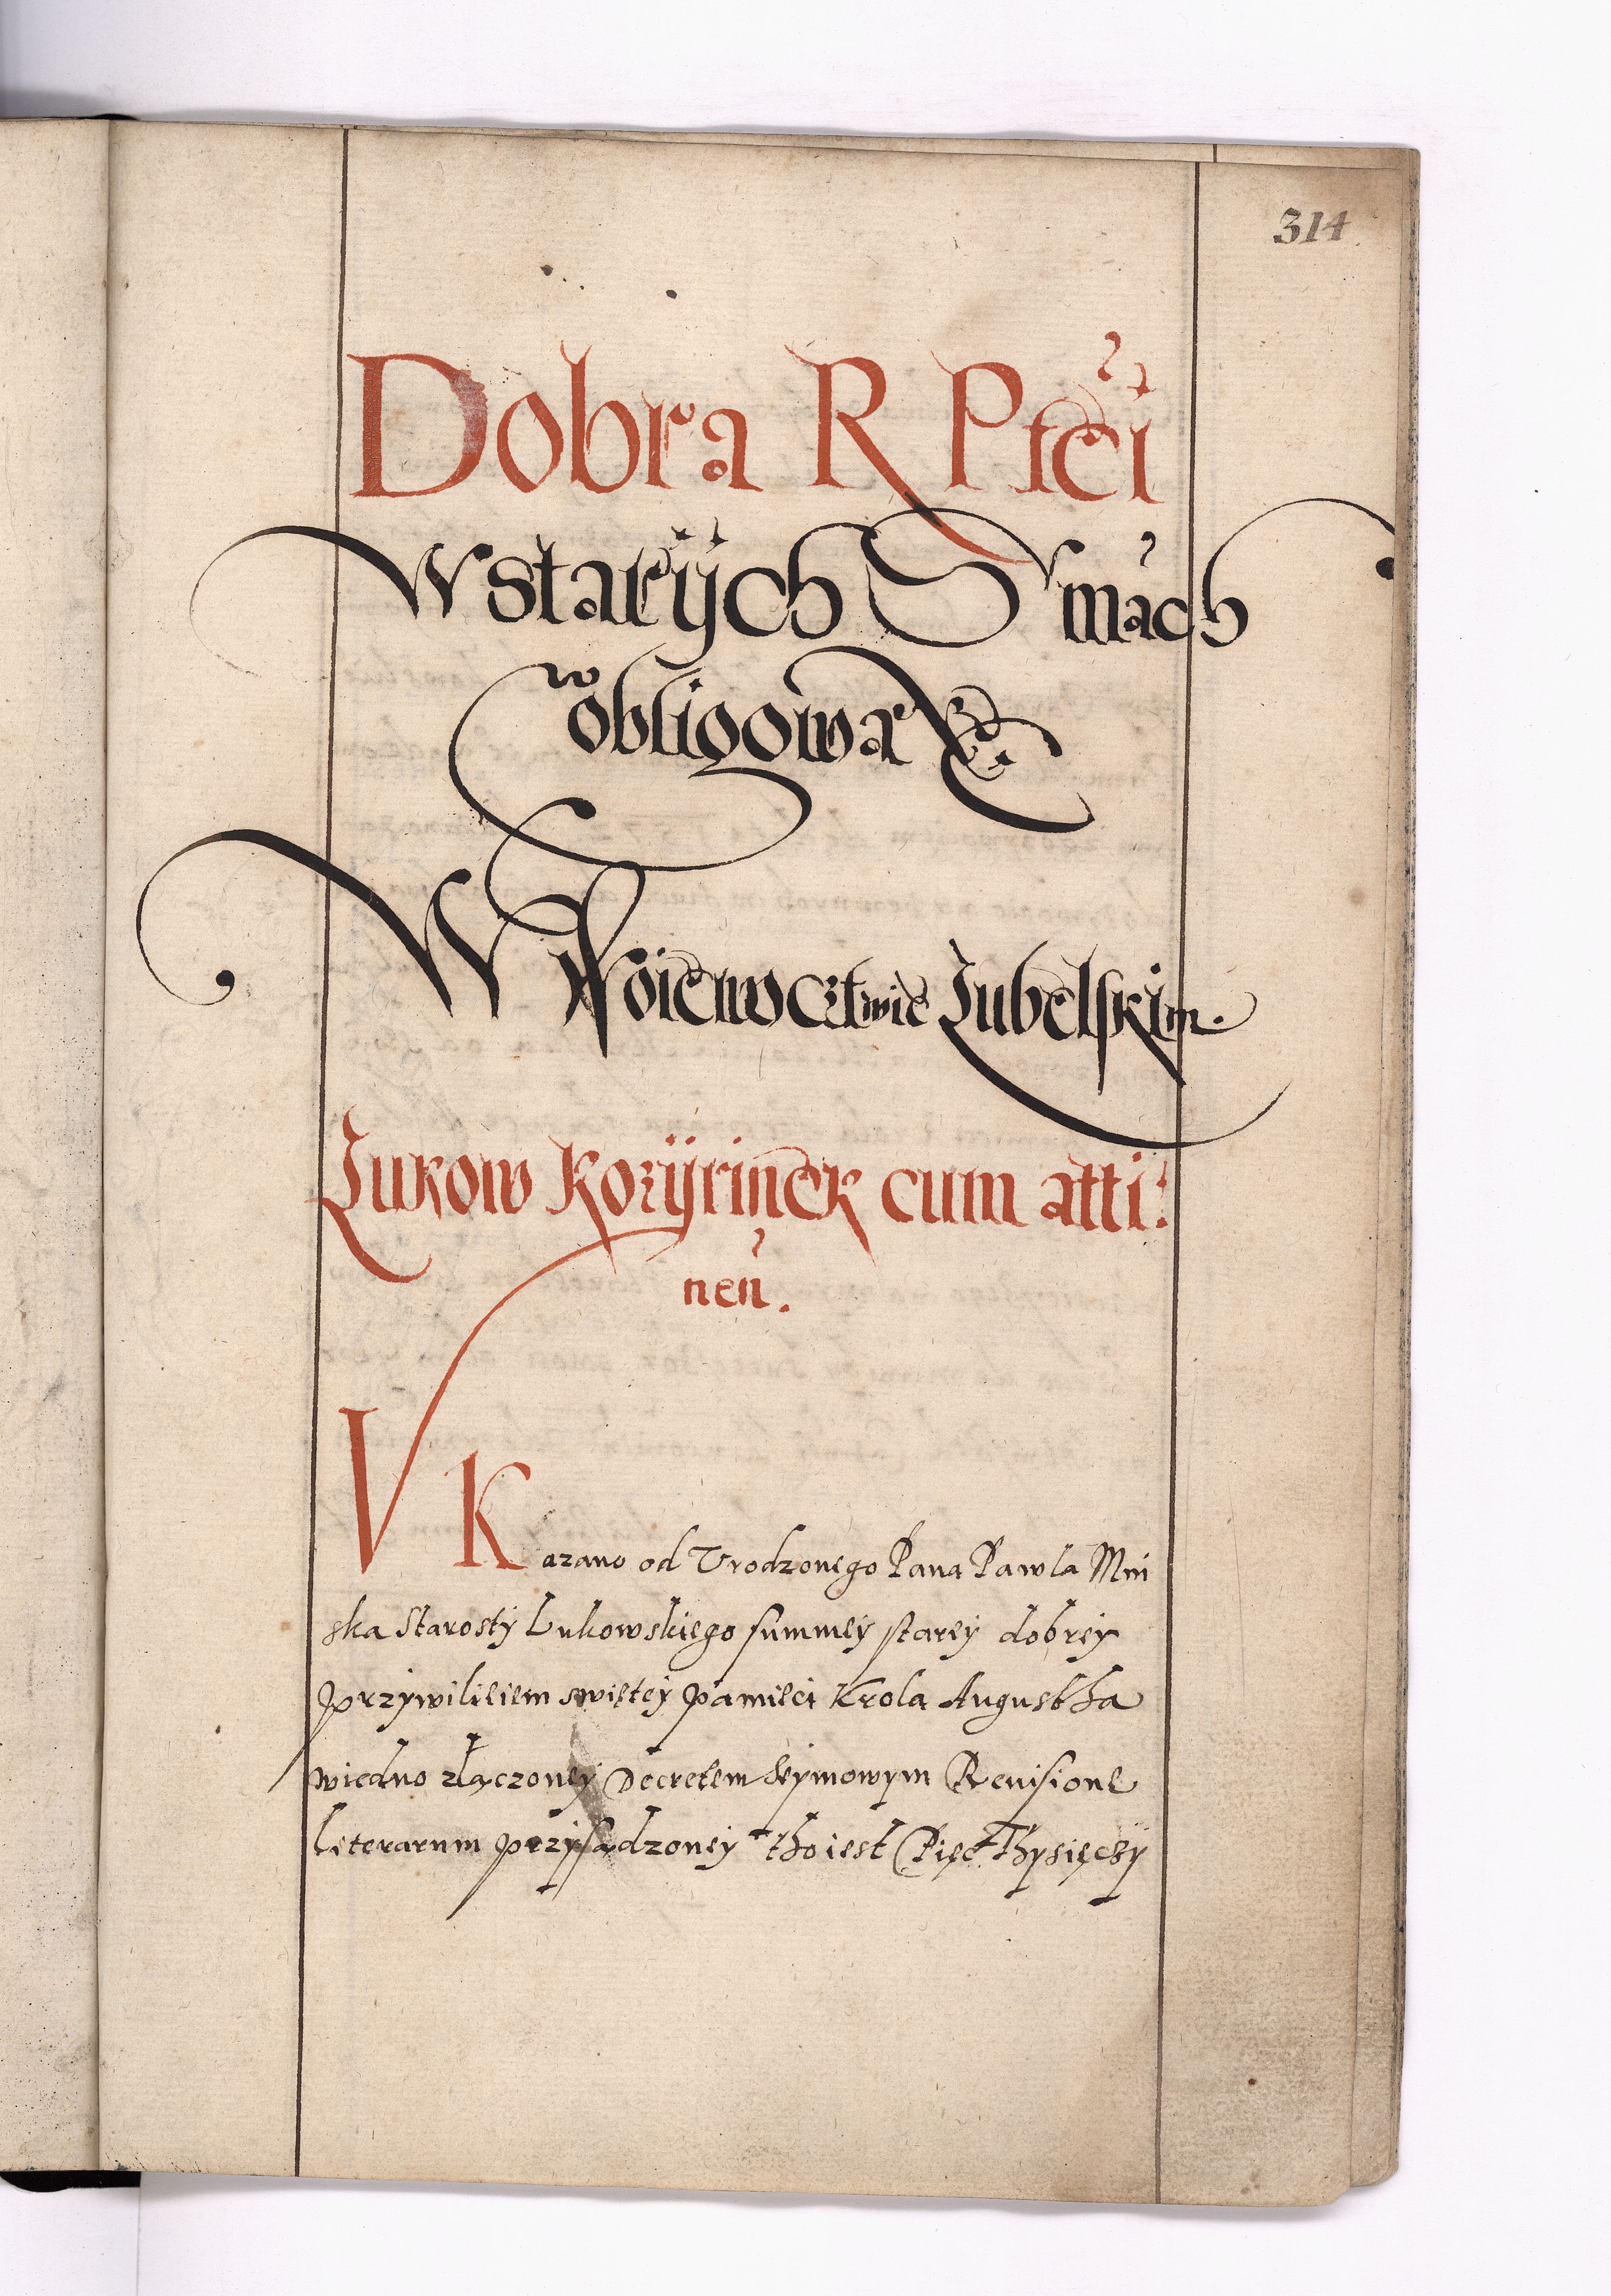 314
Dobra R Ptći
W starÿch Smách
obligowane
W Woiewocztwie Lubelskim.
Lukow Kozÿrinek cum atti:
nen.
VKazano od Vrodzonego Pana Pawla Mni
ska Starostÿ Lukowskiego summeÿ stareÿ dobreÿ
Przywilieiem swięteÿ pamieci Krola Augustha
wiedno złączoneÿ Decretem Seÿmowym Reuisione
Literarum przÿsądzoneÿ tho iest Pięć Thysięczÿ